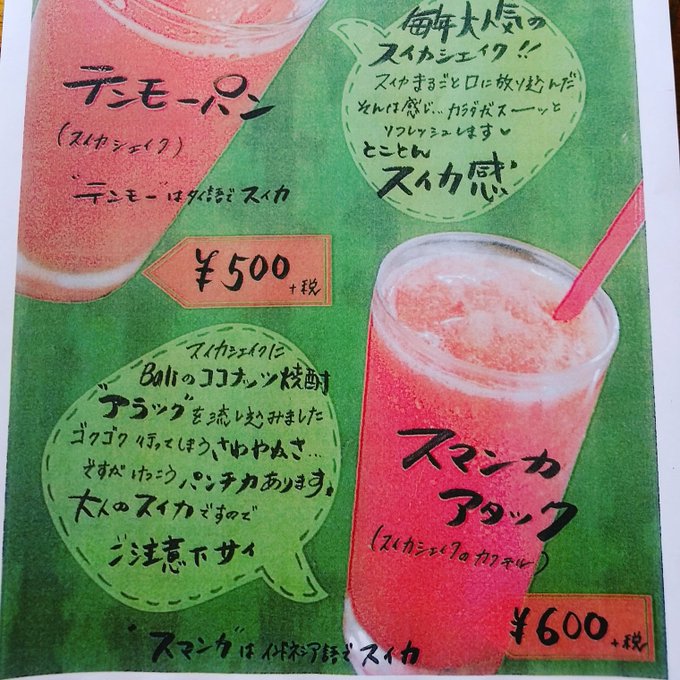 テンモーパン
(スイカシェイク)
"テンモー"はタイ語でスイカ
¥500
+税
毎年大人気の
スイカシェイク!!
スイカまるごと口に放り込んだ
そんな感じ…カラダがスーーッと
リフレッシュします♥
とことん
スイカ感
スイカシェイクに
Baliのココナッツ焼酎
"アラック"を流し込みました
ゴクゴク行ってしまうさわやかさ…
ですがけっこうパンチ力あります。
大人のスイカですので
ご注意下サイ
スマンカ
アタック
(スイカシェイクのカクテル)
¥600
+税
"スマンガ"はインドネシア語でスイカ